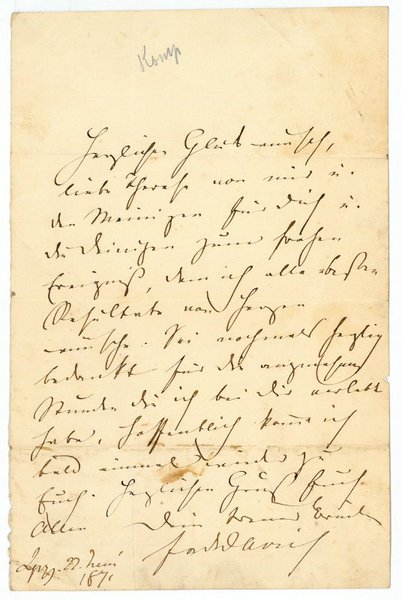 Komp
Herzlichen Glückwunsch,
liebe Therese von mir u.
den Meinigen für Dich u.
die Deinigen zum frohen
Ereigniß, dem ich alle besten
Resultate von Herzen
wünsche. Sei nochmals herzlich
bedankt für die angenehmen
Stunden die ich bei dir verlebt
habe. Hoffentlich komme ich
bald einmal wieder zu
Euch. Herzlichen Gruß Euch
Allen Dein treuer Bruder
Lpzg. 22. Juni
187